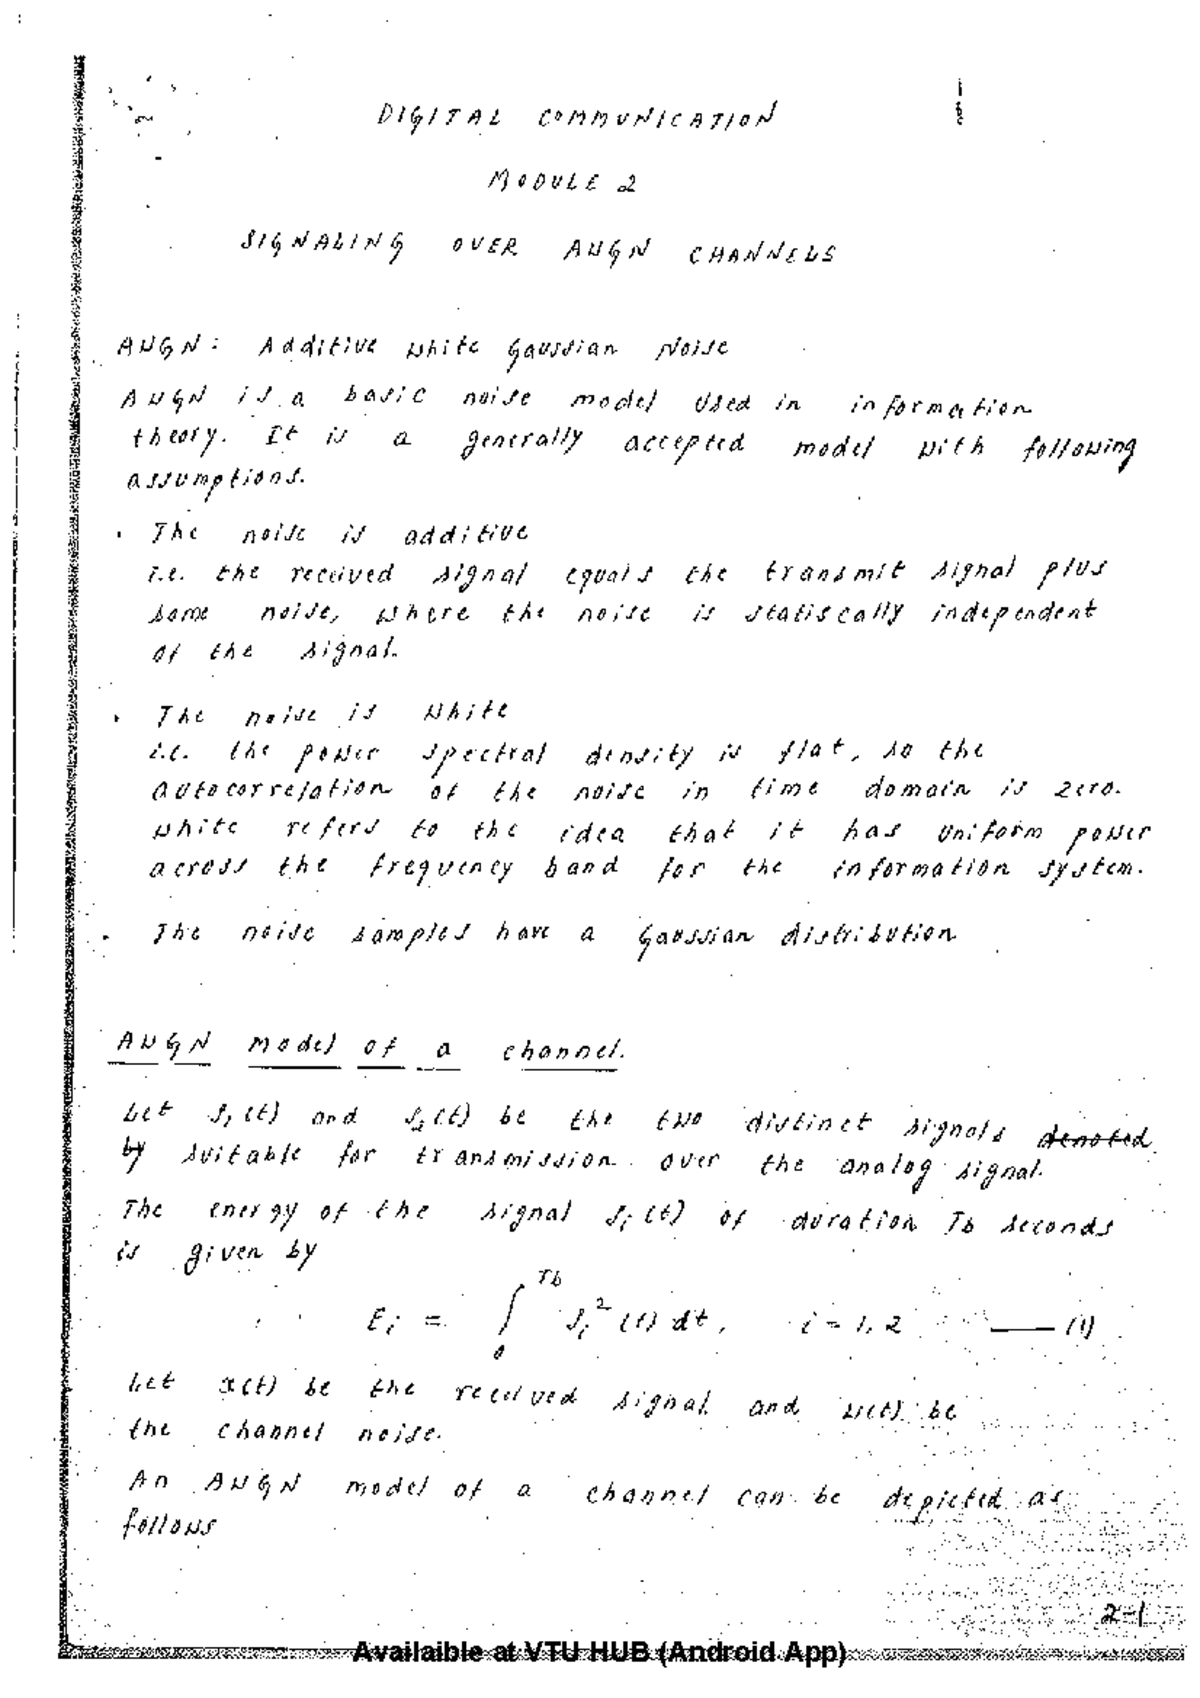 DIGITAL COMMUNICATION
MODULE 2
SIGNALING OVER AWGN CHANNELS
AWGN: Additive White Gaussian Noise
AWGN is a basic noise model used in information
theory. It is a generally accepted model with following
assumptions.
. The noise is additive
i.e. the received signal equals the transmit signal plus
some noise, where the noise is statiscally independent
of the signal.
. The noise is white
i.e. the power spectral density is flat, so the
autocorrelation of the noise in time domain is zero.
White refers to the idea that it has uniform power
across the frequency band for the information system.
. The noise samples have a Gaussian distribution
AWGN model of a channel.
Let S₁(t) and S₂(t) be the two distinct signals denoted
by suitable for transmission over the analog signal.
The energy of the signal Sᵢ(t) of duration Tb seconds
is given by
Eᵢ = ∫₀^Tb Sᵢ²(t) dt, i = 1, 2 —— (1)
Let x(t) be the received signal and w(t) be
the channel noise.
An AWGN model of a channel can be depicted as
follows
2-1
Availaible at VTU HUB (Android App)